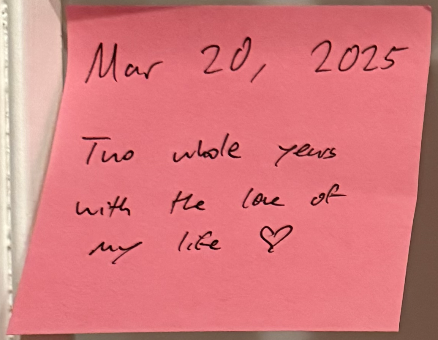 Mar 20, 2025
Two whole years
with the love of
my life ♡